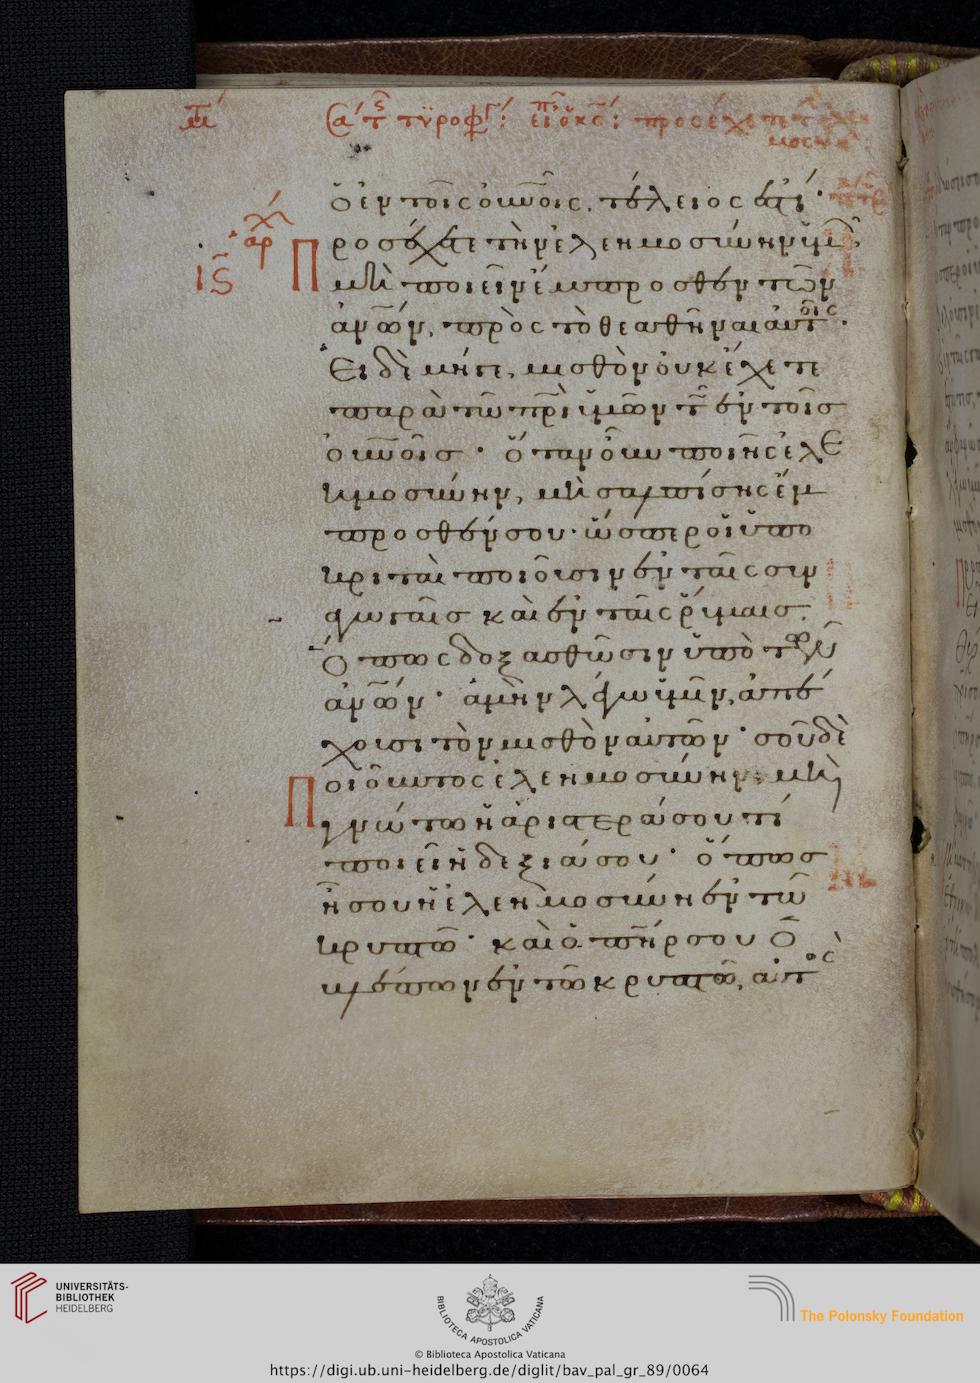 ὁ ἐν τοῖς οὐνοῖς, τέλειός ἐστι·
Προσέχετε τὴν ἐλεημοσύνην ὑμῶν
μὴ ποιεῖν ἔμπροσθεν τῶν
ἀνων, πρὸς τὸ θεαθῆναι αὐτοῖς·
Εἰ δὲ μήγε, μισθὸν οὐκ ἔχετε
παρὰ τῶ πρὶ ὑμῶν τῶ ἐν τοῖσ
οὐνοῖσ· ὅταν οὖν ποιῆς ἐλε
ημοσύνην, μὴ σαλπίσης ἔμ
προσθέν σου· ὥσπερ οἱ ὑπο
κριταὶ ποιοῦσιν ἐν ταῖς συν
αγωγαῖσ καὶ ἐν ταῖς ῥύμαισ.
Ὅπως δοξασθῶσιν ὑπὸ τῶν
ἀνων· ἀμὴν λέγω ὑμῖν, ἀπέ
χουσι τὸν μισθὸν αὐτῶν· σοῦ δὲ
Ποιοῦντος ἐλεημοσύνην, μὴ
γνώτω ἡ ἀριστερά σου τί
ποιεῖ ἡ δεξιά σου· ὅπωσ
ῆ σου ἡ ἐλεημοσύνη ἐν τῶ
κρυπτῶ· καὶ ὁ πήρ σου ὁ
βλέπων ἐν τῶ κρυπτῶ, αὐτὸς
UNIVERSITÄTS-
BIBLIOTHEK
HEIDELBERG
BIBLIOTECA APOSTOLICA VATICANA
© Biblioteca Apostolica Vaticana
The Polonsky Foundation
https://digi.ub.uni-heidelberg.de/diglit/bav_pal_gr_89/0064